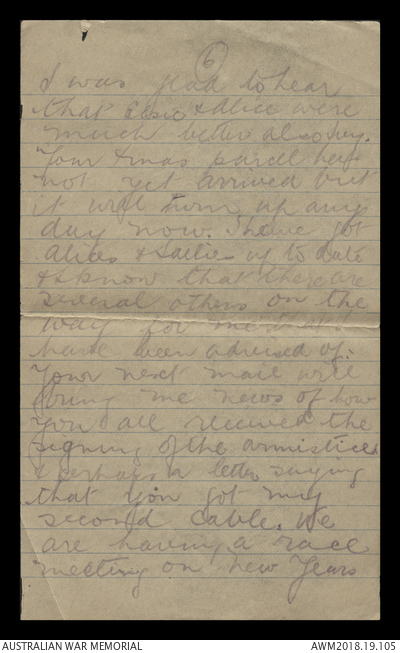 6
I was glad to hear
that Elsie & Alice were
much better also Ivy.
Your Xmas parcel has
not yet arrived but
it will turn up any
day now. I have got
Alices & Sallies up to date
& I know that there are
several others on the
way for me that I
have been advised of.
Your next mail will
bring me news of how
you all received the
signing of the armistice
& perhaps a letter saying
that you got my
second cable. We
are having a race
meeting on New Years
AUSTRALIAN WAR MEMORIAL
AWM2018.19.105